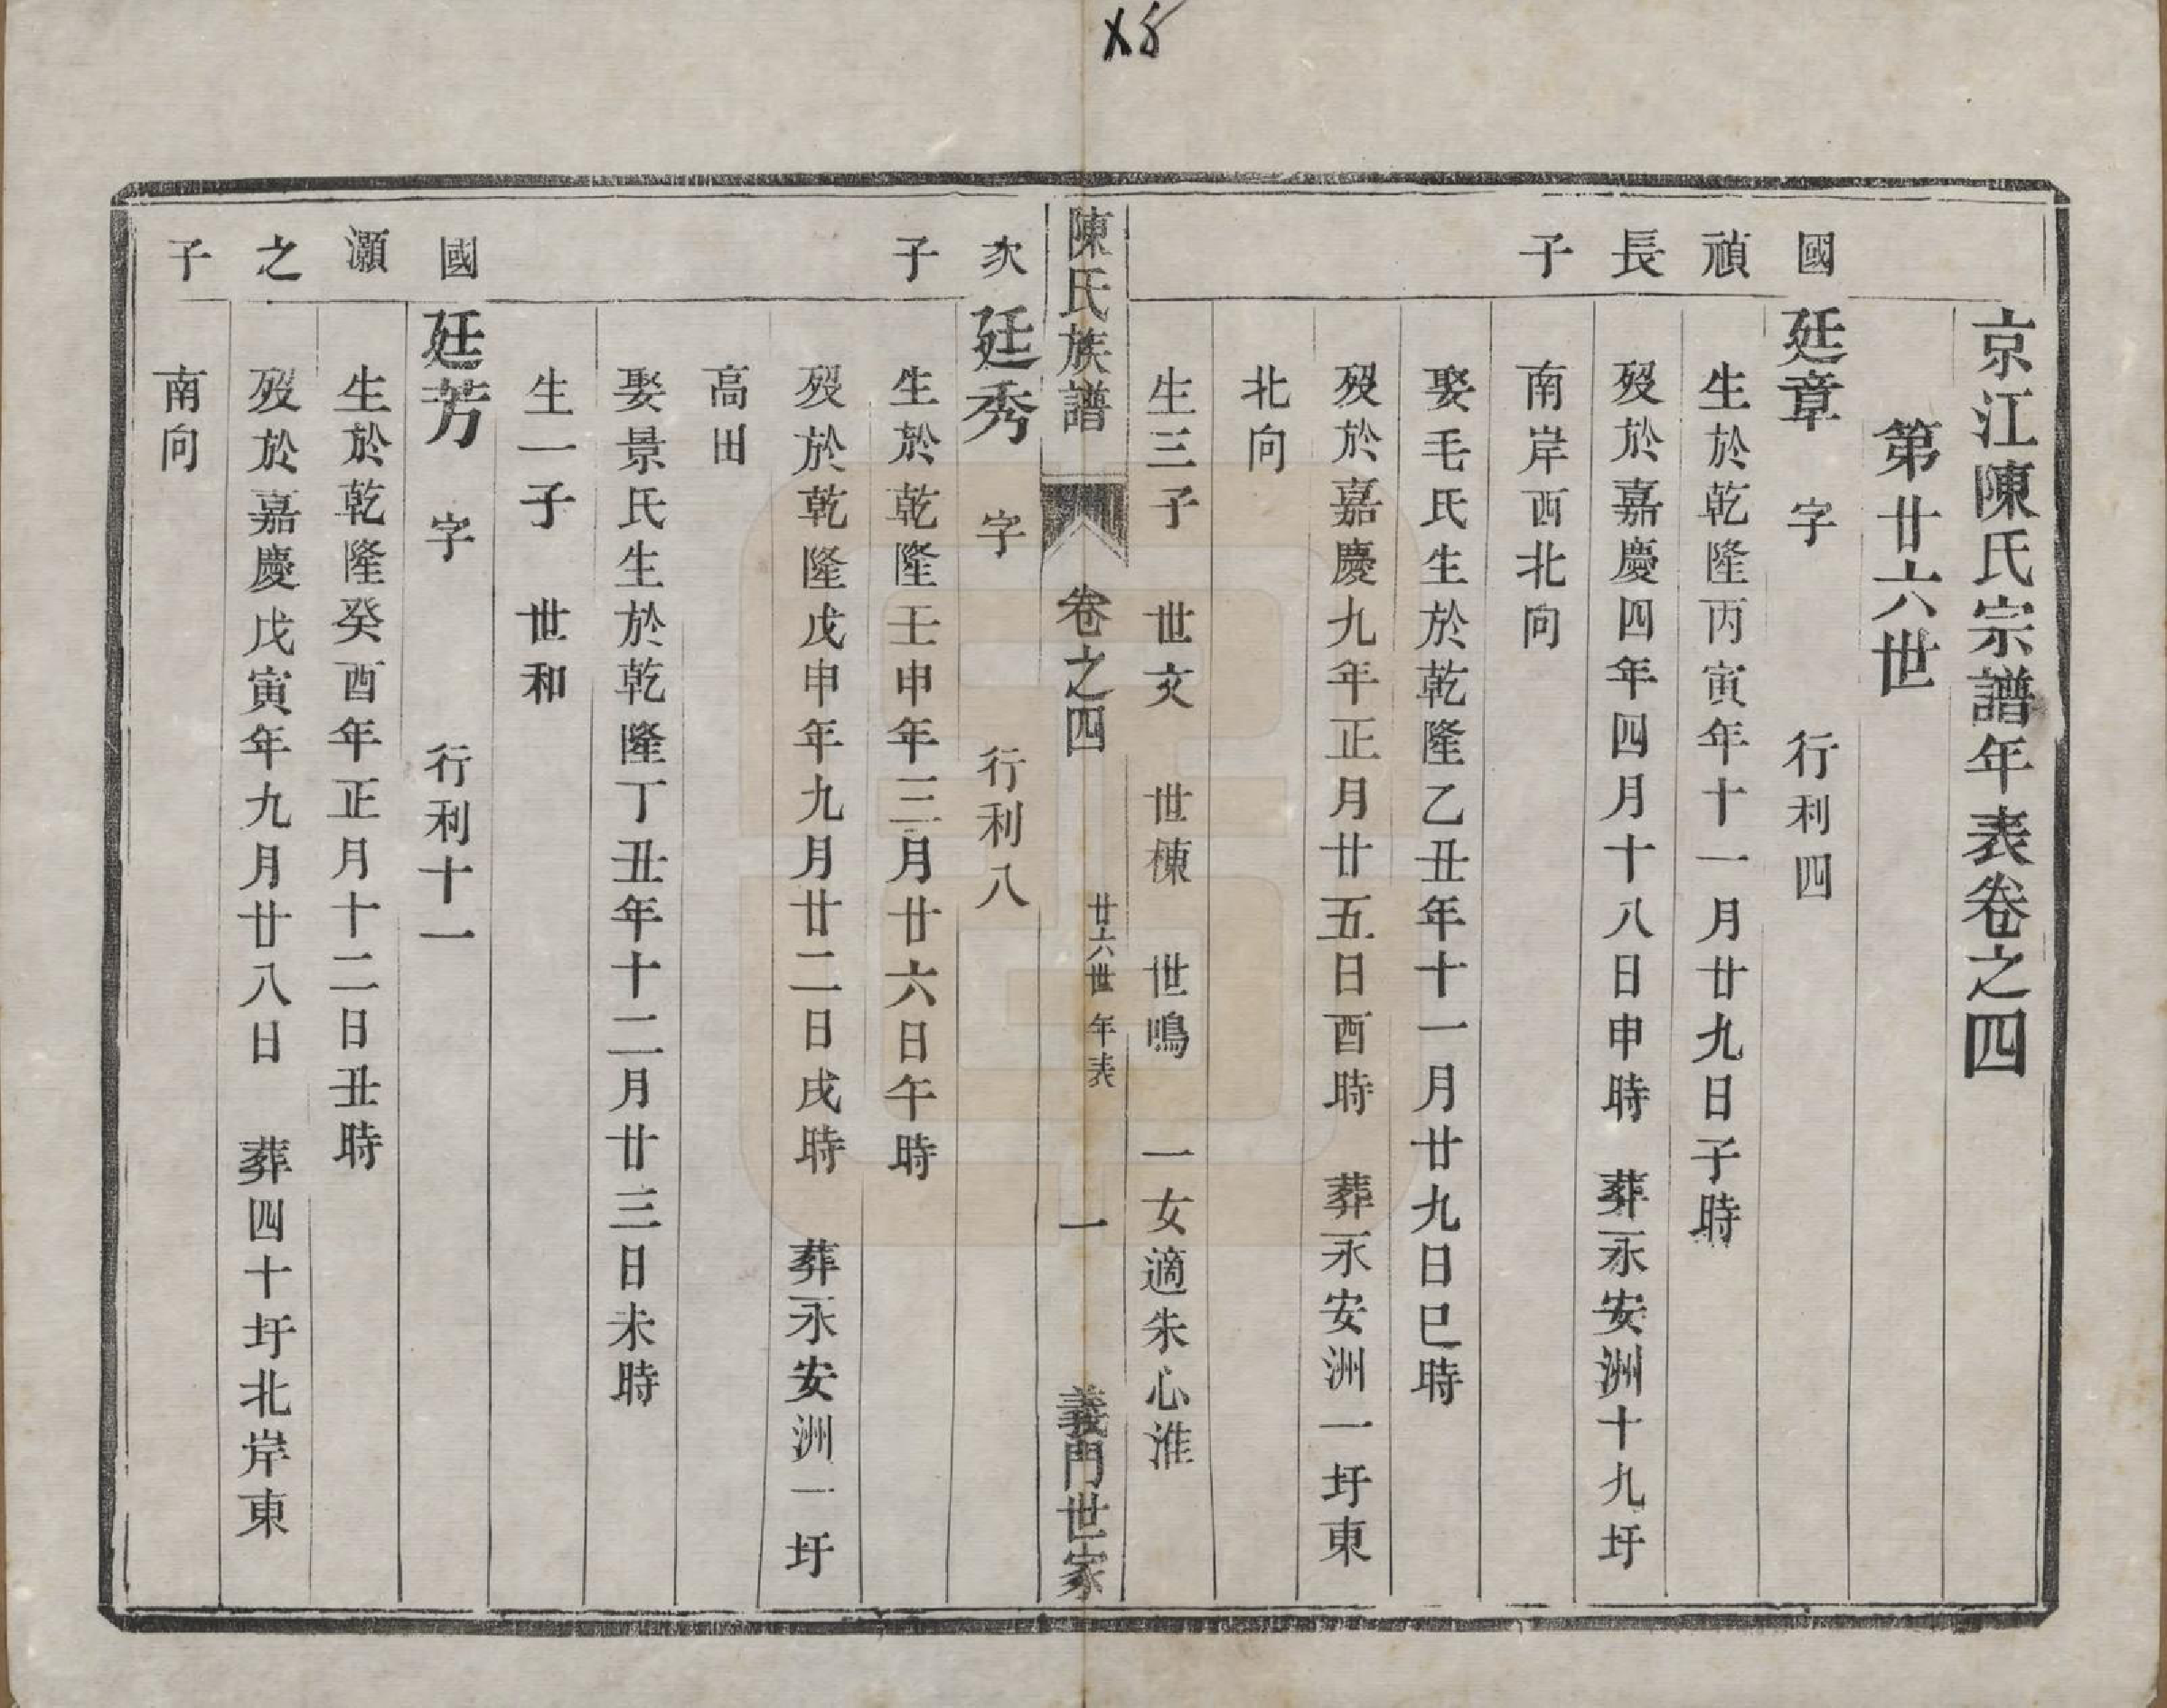 京江陳氏宗譜年表卷之四
第廿六世
國
廷章 字 行利四
禎
生於乾隆丙寅年十一月廿九日子時
長
歿於嘉慶四年四月十八日申時 葬永安洲十九圩
子
南岸西北向
娶毛氏生於乾隆乙丑年十一月廿九日巳時
歿於嘉慶九年正月廿五日酉時 葬永安洲一圩東
北向
生三子 世文 世棟 世鳴 一女適朱心淮
陳氏族譜 卷之四 廿六世 年表 一 義門世家
次
廷秀 字 行利八
子
生於乾隆壬申年三月廿六日午時
歿於乾隆戊申年九月廿二日戌時 葬永安洲一圩
高田
娶景氏生於乾隆丁丑年十二月廿三日未時
生一子 世和
國
廷芳 字 行利十一
灝
生於乾隆癸酉年正月十二日丑時
之
歿於嘉慶戊寅年九月廿八日 葬四十圩北岸東
子
南向